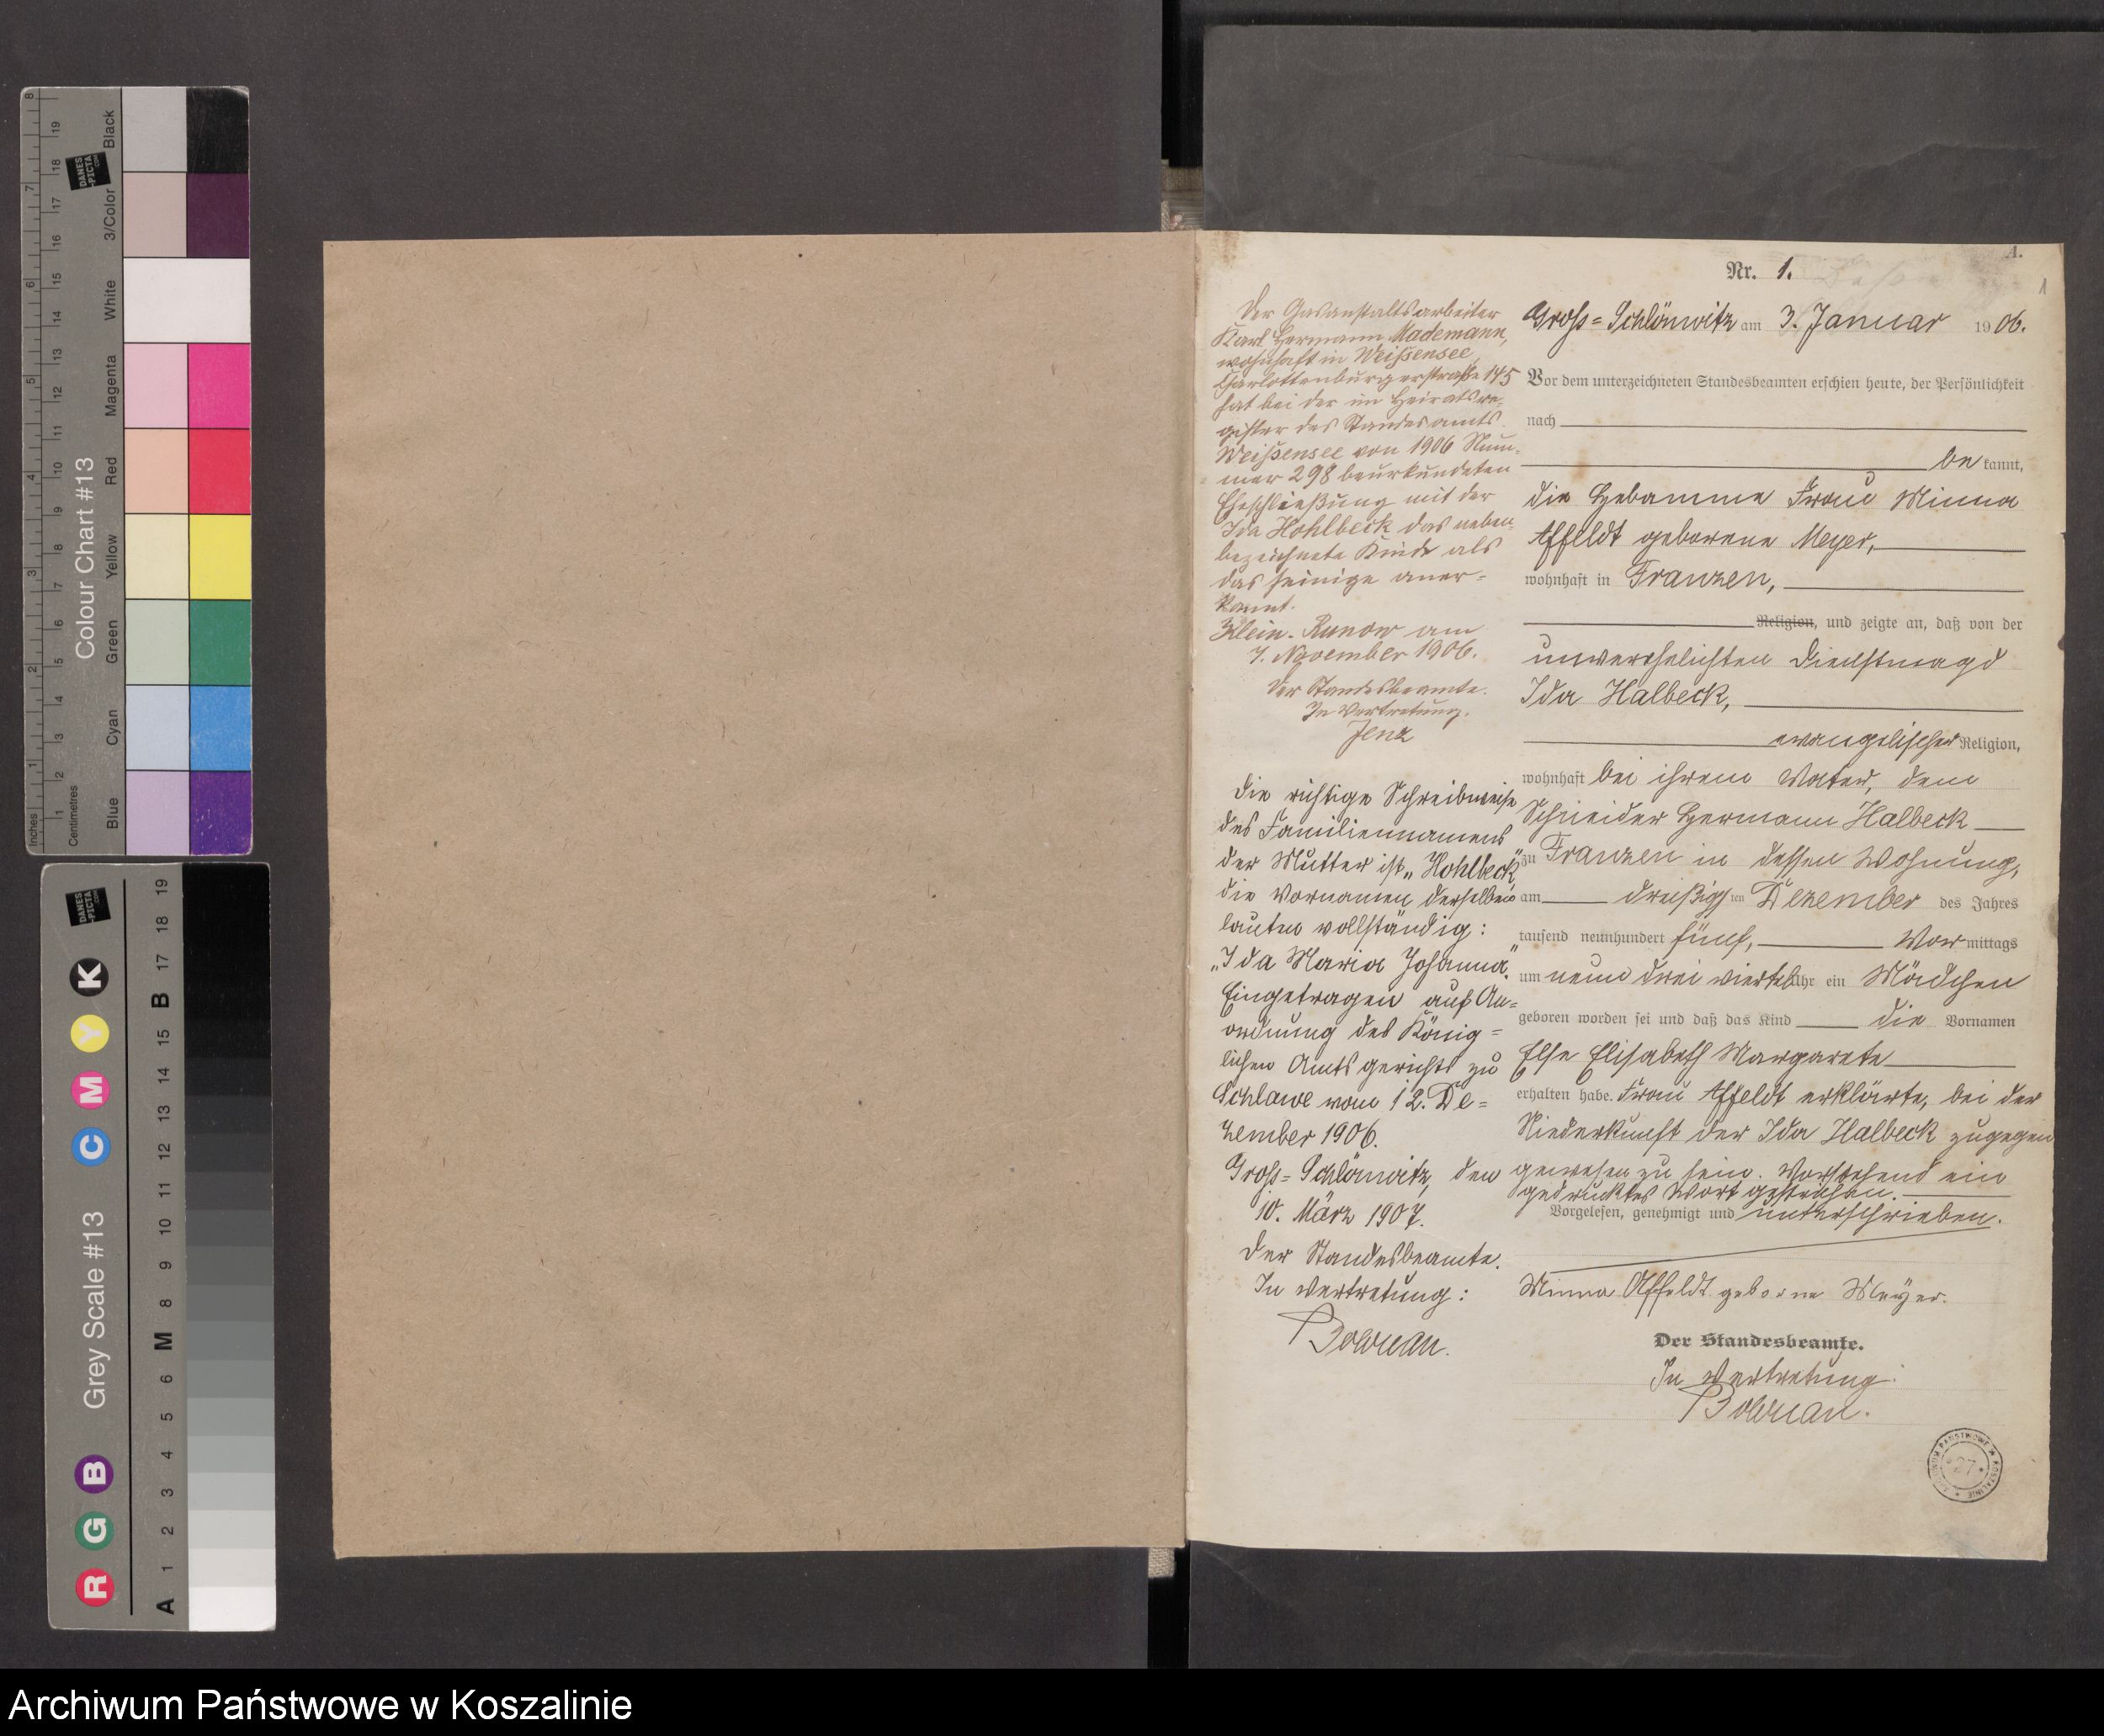 Nr. 1.
A.
1
Gross=Schlönwitz am 3. Januar 1906.
Vor dem unterzeichneten Standesbeamten erschien heute, der Persönlichkeit
nach
be kannt,
die Hebamme Frau Minna
Affeldt geborene Meyer,
wohnhaft in Franzen,
Religion, und zeigte an, daß von der
unverehelichten Dienstmagd
Ida Halbeck,
evangelischer Religion,
wohnhaft bei ihrem Vater, dem
Schneider Hermann Halbeck
zu Franzen in dessen Wohnung,
am dreißigsten Dezember des Jahres
tausend neunhundert fünf, Vor mittags
um neun drei viertel Uhr ein Mädchen
geboren worden sei und daß das Kind die Vornamen
Else Elisabeth Margarete
erhalten habe. Frau Affeldt erklärte, bei der
Niederkunft der Ida Halbeck zugegen
gewesen zu sein. Vorstehend ein
gedrucktes Wort gestrichen.
Vorgelesen, genehmigt und unterschrieben.
Minna Affeldt geborne Meyer.
Der Standesbeamte.
In Vertretung.
Der Gasanstaltsarbeiter
Karl Hermann Mademann,
wohnhaft in Weißensee,
Charlottenburgerstraße 145
hat bei der im Heiratsre-
gister des Standesamts
Weißensee von 1906 Num-
mer 298 beurkundeten
Eheschließung mit der
Ida Hohlbeck das neben-
bezeichnete Kind als
das seinige aner=
kannt.
Klein-Runow am
7. November 1906.
Der Standesbeamte.
In Vertretung.
Jenz
Die richtige Schreibweise
des Familiennamens
der Mutter ist „Hohlbeck“
die Vornamen derselben
lauten vollständig:
„Ida Maria Johanna“.
Eingetragen auf An=
ordnung des König=
lichen Amtsgerichts zu
Schlawe vom 12. De=
zember 1906.
Gross=Schlönwitz, den
10. März 1907.
Der Standesbeamte.
In Vertretung:
27
Colour Chart #13
Inches
Centimetres
Blue Cyan Green Yellow Red Magenta White 3/Color Black
DANES
-PICTA
.COM
Grey Scale #13
R G B C M Y K
A 1 2 3 4 5 6 M 8 9 10 11 12 13 14 15 B 17 18 19
DANES
-PICTA
.COM
Archiwum Państwowe w Koszalinie